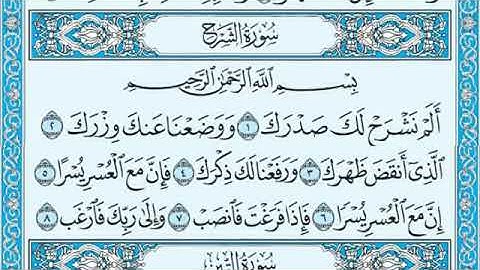 سُورَةُ الشَّرۡحِ
بِسۡمِ ٱللَّهِ ٱلرَّحۡمَٰنِ ٱلرَّحِيمِ
أَلَمۡ نَشۡرَحۡ لَكَ صَدۡرَكَ ١ وَوَضَعۡنَا عَنكَ وِزۡرَكَ ٢
ٱلَّذِيٓ أَنقَضَ ظَهۡرَكَ ٣ وَرَفَعۡنَا لَكَ ذِكۡرَكَ ٤ فَإِنَّ مَعَ ٱلۡعُسۡرِ يُسۡرًا ٥
إِنَّ مَعَ ٱلۡعُسۡرِ يُسۡرٗا ٦ فَإِذَا فَرَغۡتَ فَٱنصَبۡ ٧ وَإِلَىٰ رَبِّكَ فَٱرۡغَب ٨
سُورَةُ التِّينِ